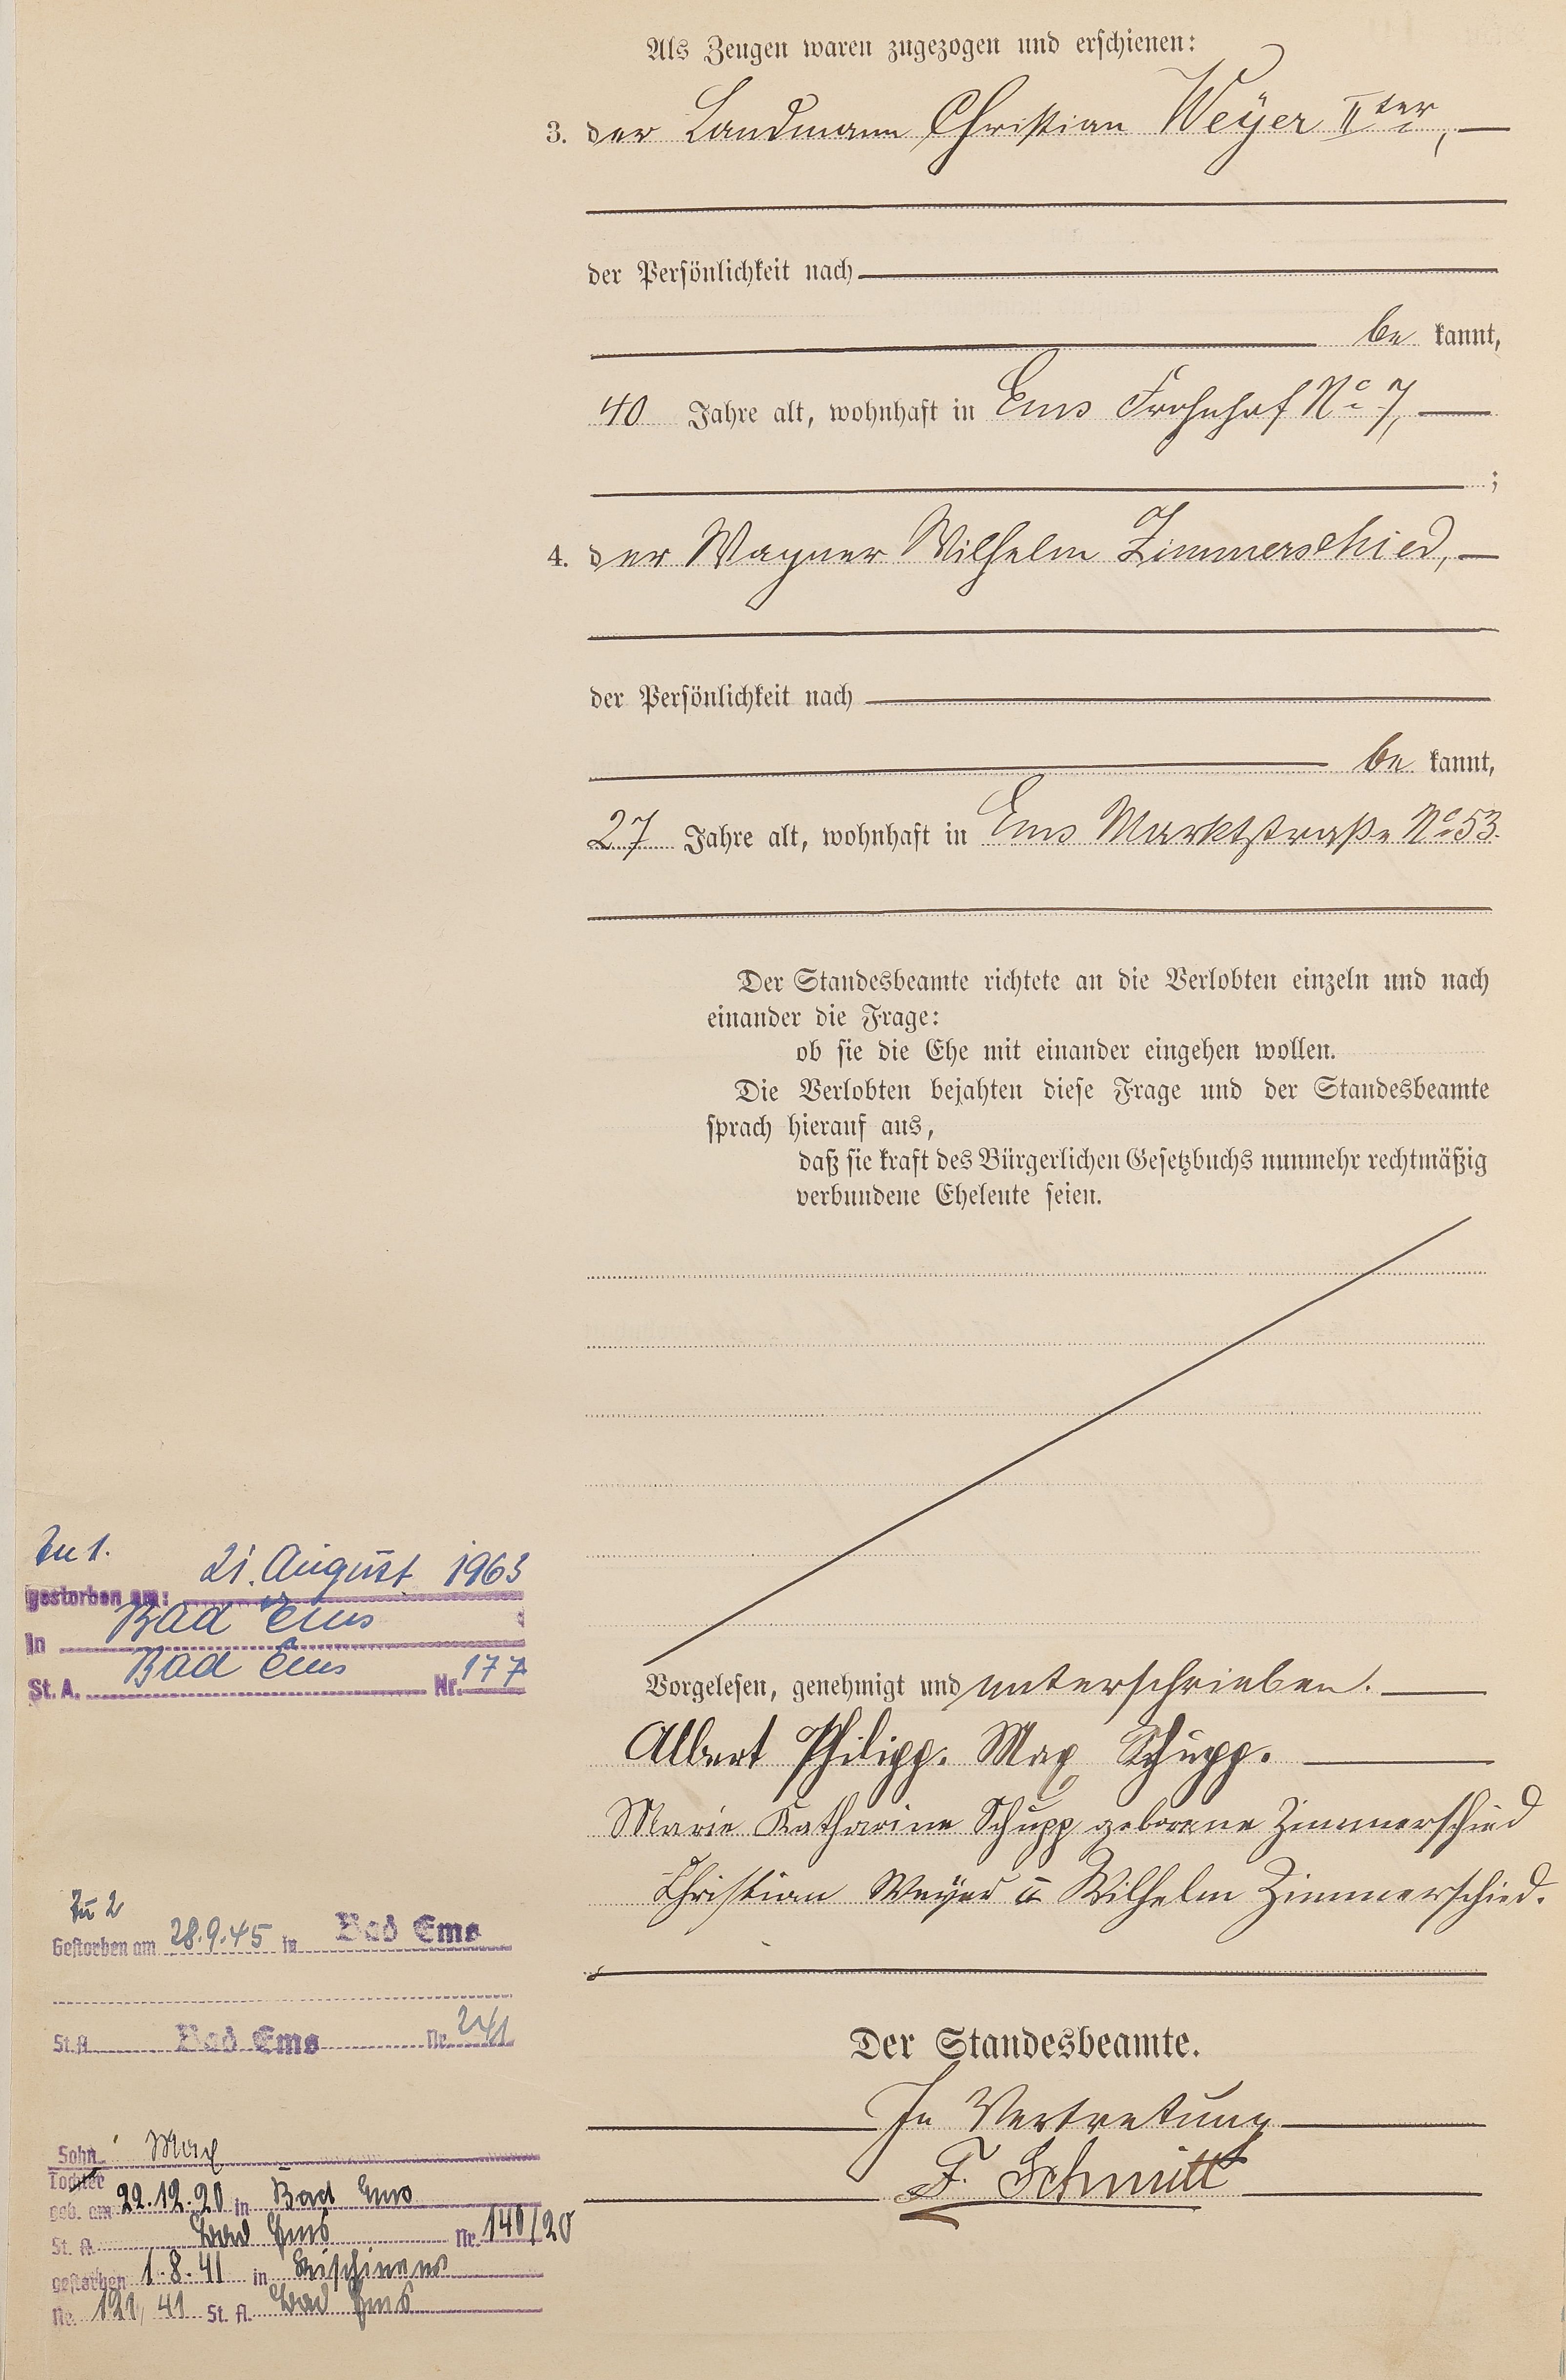 Als Zeugen waren zugezogen und erschienen:
3. der Landmann Christian Weÿer IIter,
der Persönlichkeit nach
be kannt,
40 Jahre alt, wohnhaft in Ems Frohnhof No 7,
;
4. der Wagner Wilhelm Zimmerschied,
der Persönlichkeit nach
be kannt,
27 Jahre alt, wohnhaft in Ems Marktstraße No 53.
Der Standesbeamte richtete an die Verlobten einzeln und nach
einander die Frage:
ob sie die Ehe mit einander eingehen wollen.
Die Verlobten bejahten diese Frage und der Standesbeamte
sprach hierauf aus,
daß sie kraft des Bürgerlichen Gesetzbuchs nunmehr rechtmäßig
verbundene Eheleute seien.
Vorgelesen, genehmigt und unterschrieben.
Albert Philipp. Max Schupp.
Marie Katharine Schupp geborene Zimmerschied
Christian Weyer II Wilhelm Zimmerschied.
Der Standesbeamte.
In Vertretung
F. Schmitt
Zu 1.
gestorben am: 21. August 1963
in Bad Ems
St. A. Bad Ems Nr. 177
Zu 2
Gestorben am 28.9.45 in Bad Ems
St. A. Bad Ems Nr. 241
Sohn Max
Tochter
geb. am 22.12.20 in Bad Ems
St. A. Bad Ems Nr. 140/20
gestorben 1.8.41 in
Nr. 121/41 St. A. Bad Ems